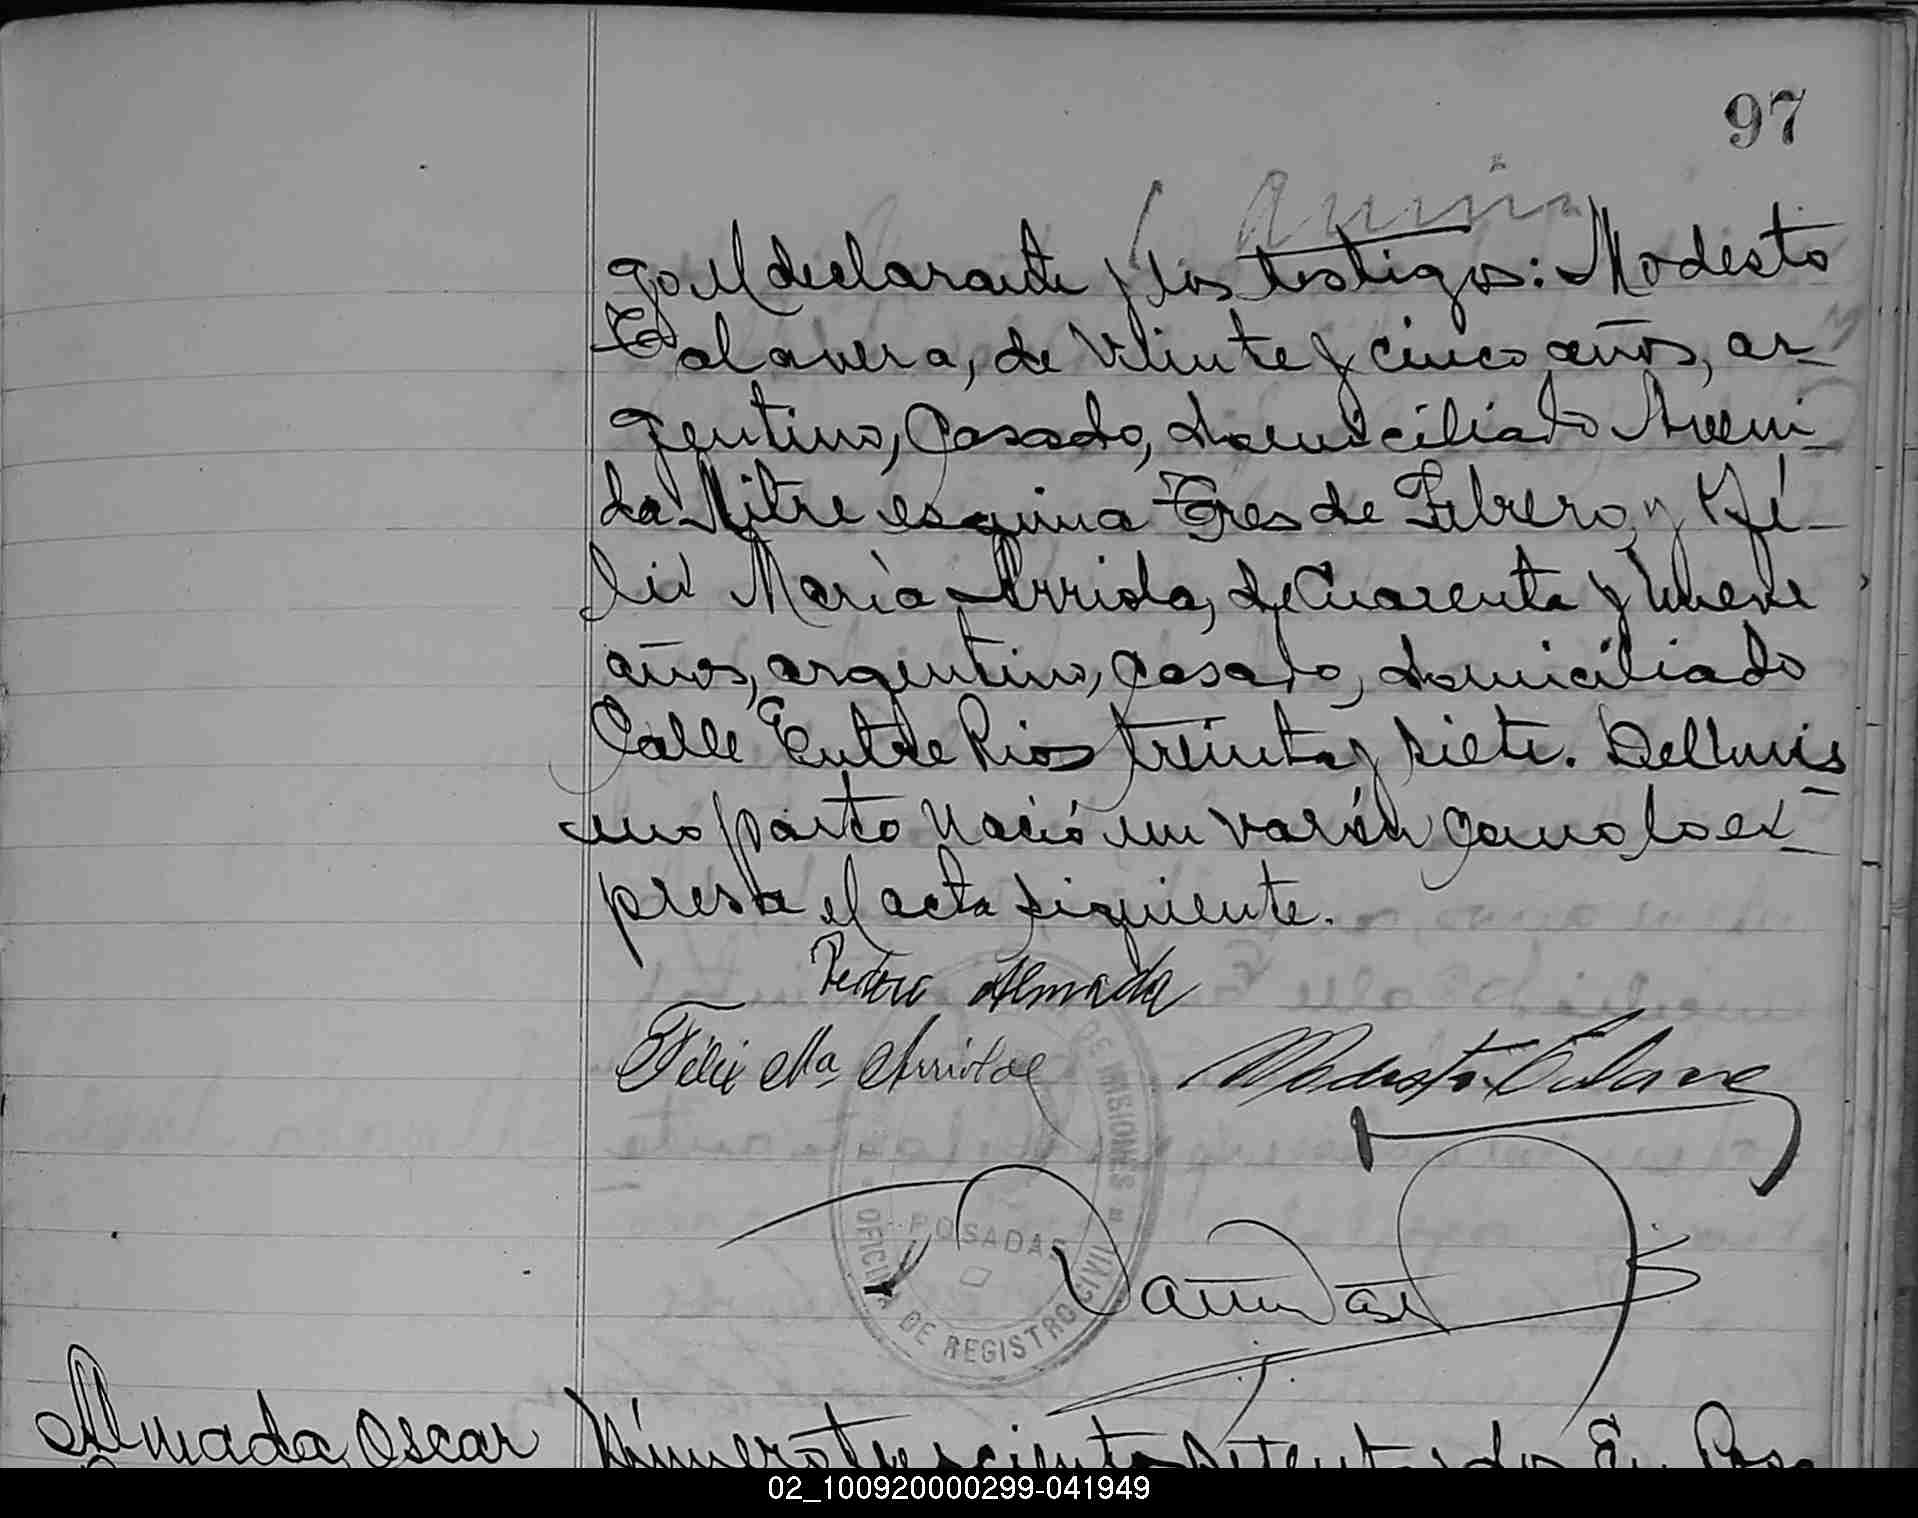 97
go el declarante y los testigos: Modesto
Talavera, de veinte y cinco años, ar-
gentino, casado, domiciliado Aveni-
da Mitre esquina Tres de Febrero, y Fé-
lix María Arriola, de cuarenta y nueve
años, argentino, casado, domiciliado
Calle Entre Rios treinta y siete. Del mis-
mo parto nació un varón como lo ex-
presa el acta siguiente.
Pedro Almada
Félix Ma Arriola
Modesto Talavera
DE MISIONES
POSADAS
OFICINA DE REGISTRO CIVIL
Almada, Oscar
Número trescientos setenta y dos En Posa
02_100920000299-041949